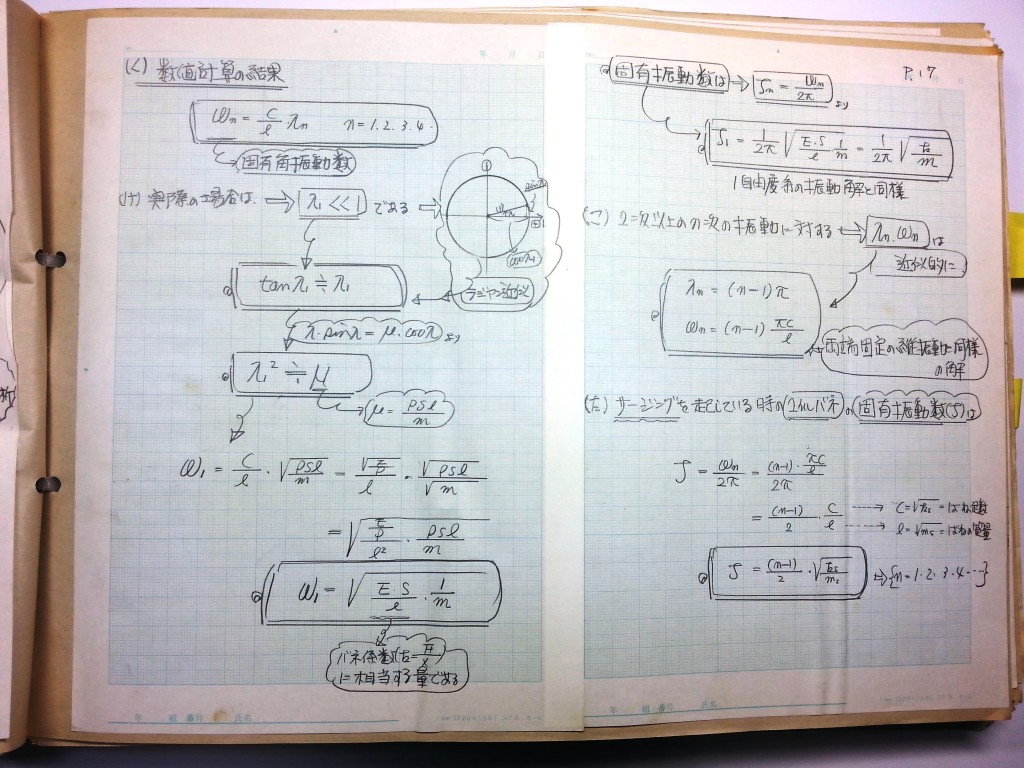 (く) 数値計算の結果
ωn = C/l λn n = 1.2.3.4.
固有角振動数
(ケ) 実際の場合は. ⇒ λ1 << 1 である ⇒
1
sinλ1
cosλ1
tanλ1 ≒ λ1
ラジアン近似
λ・sinλ = μ・cosλ より
λ1² ≒ μ
μ = ρsl/m
ω1 = C/l ・ √(ρsl/m) = √(E/ρ)/l ・ √(ρsl)/√m
= √((E/ρ)/l² ・ ρsl/m)
ω1 = √(E・S/l ・ 1/m)
バネ係数(k = F/x)
に相当する量である
年 組 番号 氏名
年 月 日
P.17
固有振動数は → fn = ωn/2π より
f1 = 1/2π √(E・S/l 1/m) = 1/2π √(k/m)
1自由度系の振動解と同様
(コ) 2次以上のn次の振動に対する ⇒ λn.ωn は
近似的に
λn = (n-1)π
ωn = (n-1) πC/l
両端固定の縦振動と同様
の解
(サ) サージングを起こしている時の コイルバネ の 固有振動数(f) は
f = ωn/2π = (n-1)・πC/l / 2π
= (n-1)/2 ・ C/l
C = √ks = ばね定数
l = √ms = ばねの質量
f = (n-1)/2 ・ √(ks/ms) ⇒ {n = 1.2.3.4…}
年 組 番号 氏名